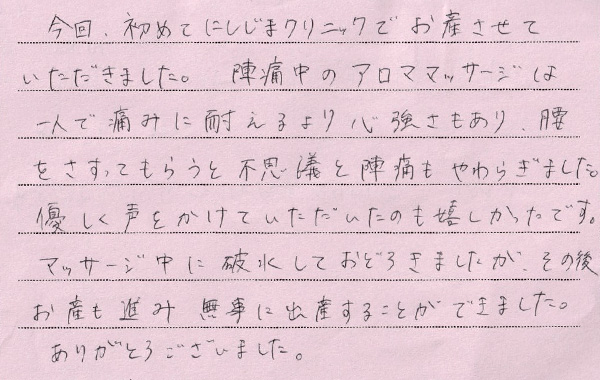 今回、初めてにしじまクリニックでお産させて
いただきました。 陣痛中のアロママッサージは
一人で痛みに耐えるより心強さもあり、腰
をさすってもらうと不思議と陣痛もやわらぎました。
優しく声をかけていただいたのも嬉しかったです。
マッサージ中に破水しておどろきましたが、その後
お産も進み 無事に出産することができました。
ありがとうございました。